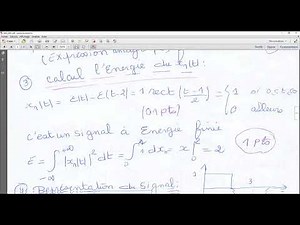 (Expression analy
③ calcul l'Energie de x₁(t):
x₁(t) = ε(t) - ε(t-2) = 1 rect (t-1/2) = {1 si 0≤
(01 pts) {0 ailleurs
c'est un signal à Energie finie
E = ∫_{-∞}^{+∞} |x₁(t)|² dt = ∫_0^2 1 dx = x |_0^2 = 2
1 pts
Représentation du Signal:
1
3